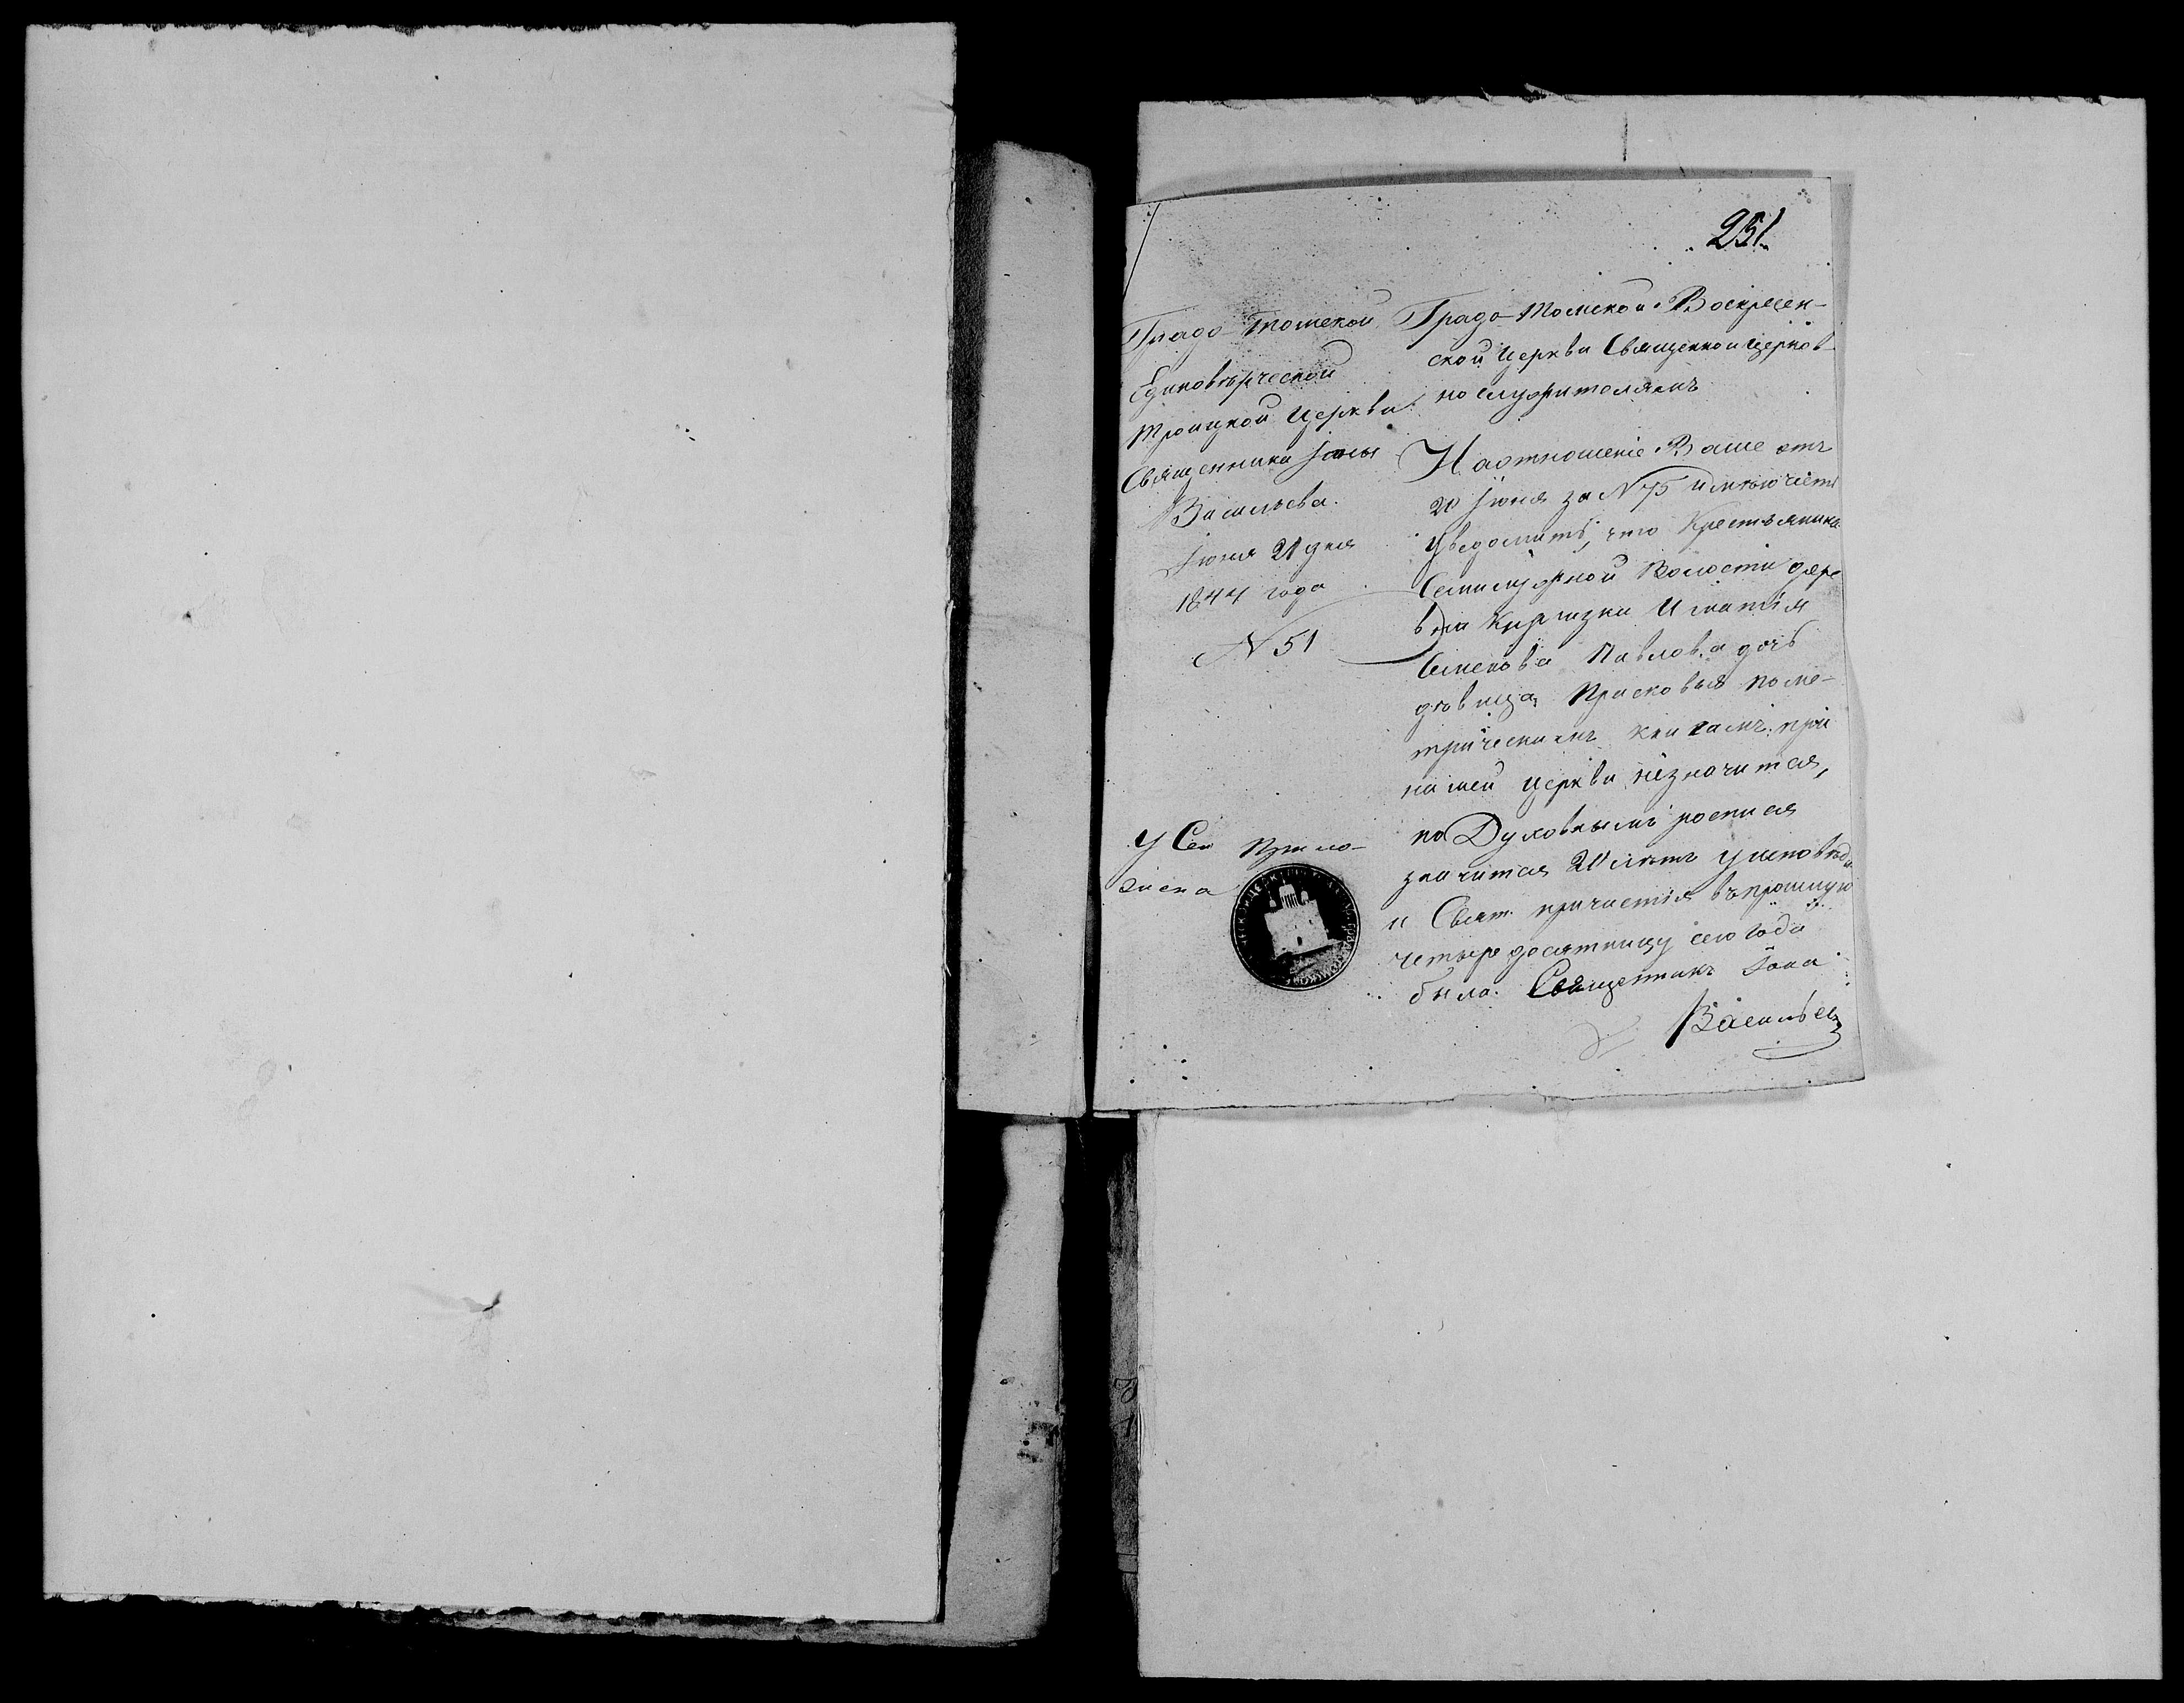 251.
Градо-Томской
Единоверческой
Троицкой Церкви
Священника Iоны
Васильева.
Iюня 21 дня
1844 года
N 51
У Сей прило-
жена
Градо-Томской Воскресен-
ской Церкви Священно и Церков-
но служителямъ
На отношенiе Ваше отъ
20 Iюня за N 75 имею честь
уведомить, что Крестьянина
Семилужной Волости дере
вни Киргизки Игнатiя
Семенова Павлова дочь
девица Прасковья по ме-
трическимъ книгамъ при
нашей Церкви незначится,
по Духовнымъ росписям
значится 20 летъ у исповеди
и Свят. причастiя въ прошлую
четыредесятницу сего года
была. Священникъ Iона
Васильев